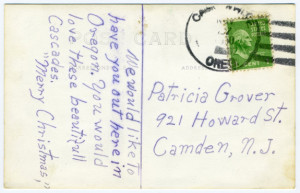 We would like to
have you out here in
Oregon. You would
love these beautiful
Cascades.
"Merry Christmas,"
POST CARD
OREG
Patricia Grover
921 Howard St.
Camden, N.J.